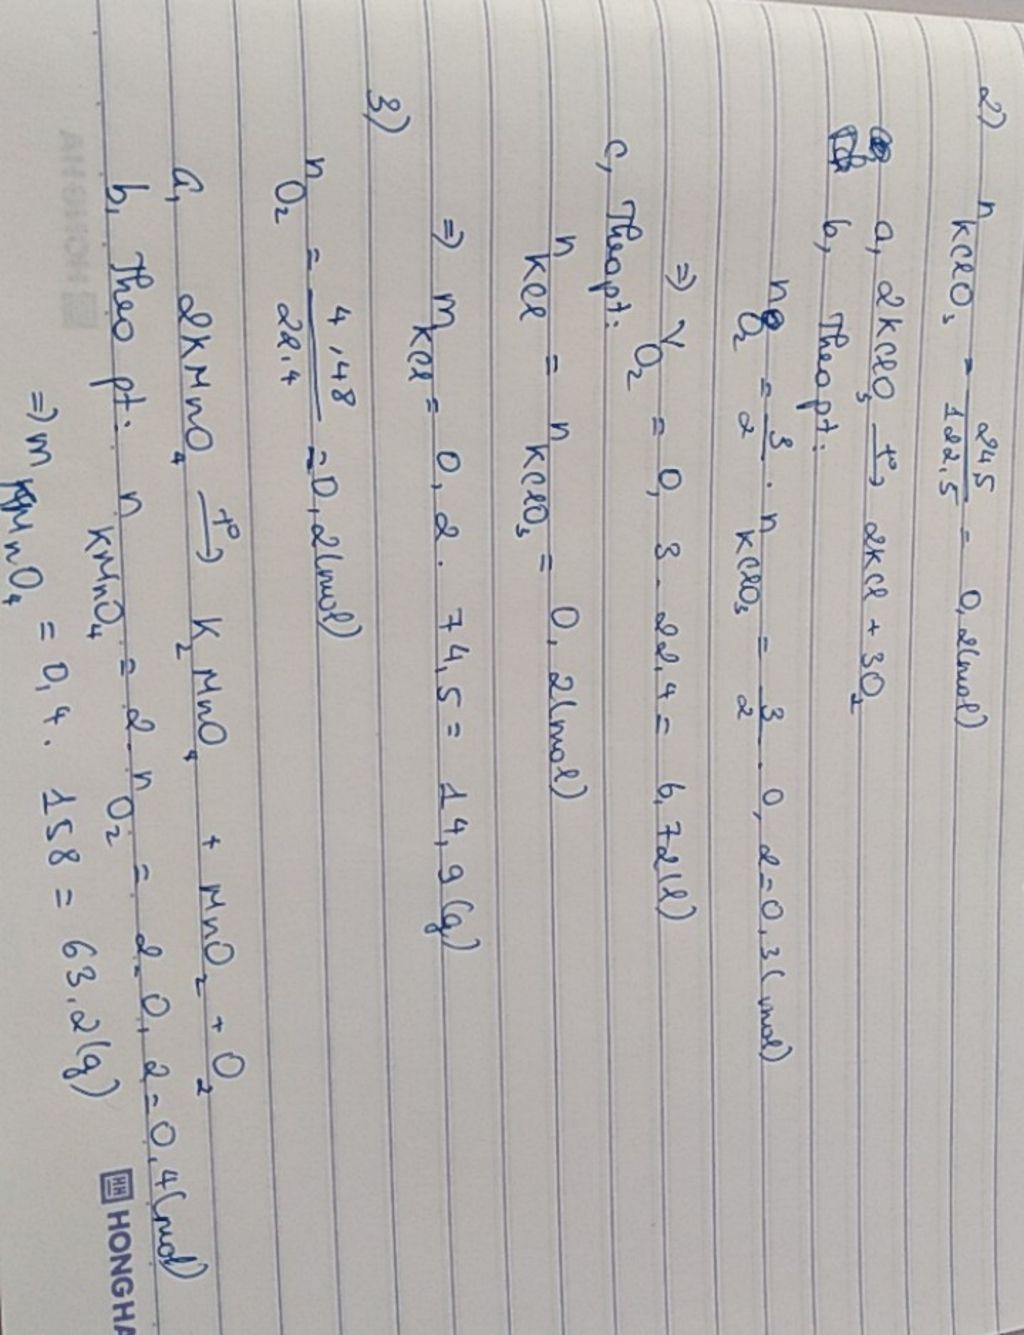 2) nKClO3 = 245/122.5 = 0,2(mol)
a, 2KClO3 t°→ 2KCl + 3O2
b, Theo pt:
nO2 = 3/2 . nKClO3 = 3/2 . 0,2 = 0,3(mol)
=> VO2 = 0,3.22,4 = 6,72(l)
c, Theo pt:
nKCl = nKClO3 = 0,2(mol)
=> mKCl = 0,2.74,5 = 14,9(g)
3)
nO2 = 4,48/22.4 = 0,2(mol)
a, 2KMnO4 t°→ K2MnO4 + MnO2 + O2
b, Theo pt: nKMnO4 = 2 nO2 = 2.0,2 = 0,4(mol)
=> mKMnO4 = 0,4.158 = 63.2(g)
HH HONG HA